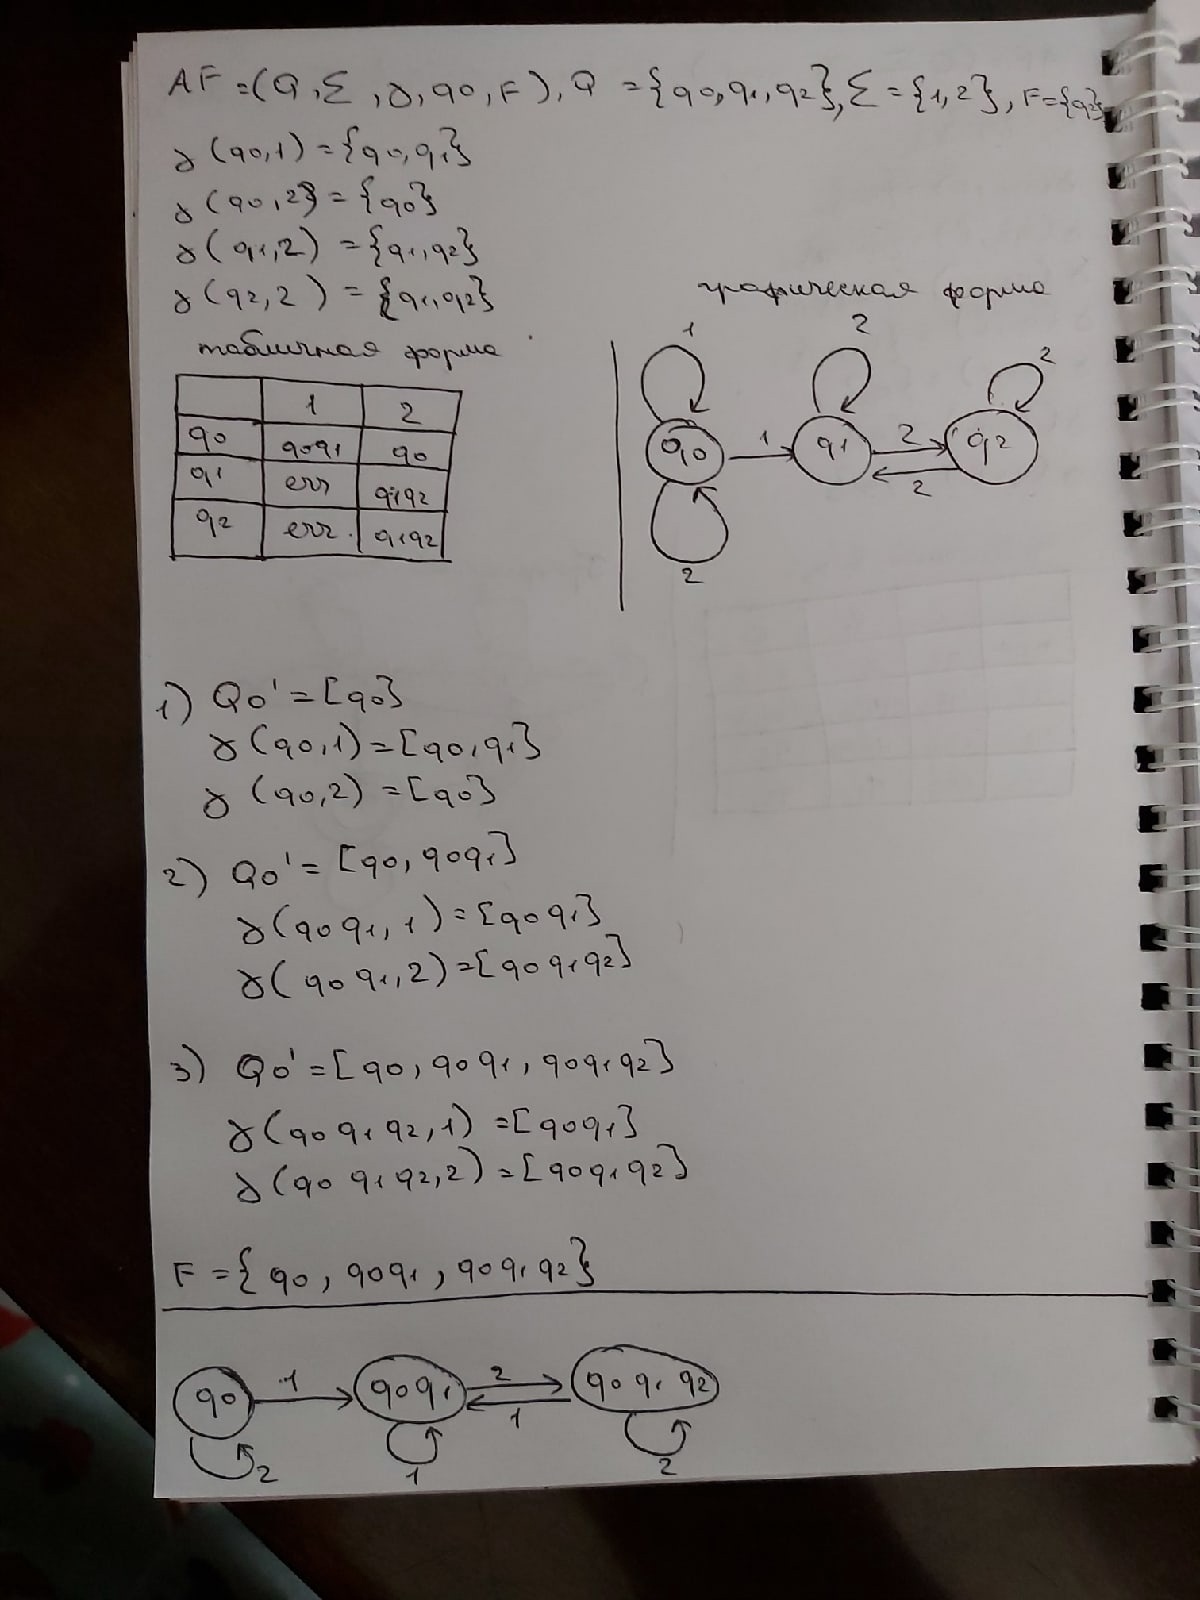 AF=(Q,Σ,γ,q0,F), Q={q0,q1,q2}, Σ={1,2}, F={q2}
γ(q0,1)={q0,q1}
γ(q0,2}={q0}
γ(q1,2)={q1,q2}
γ(q2,2)={q1,q2}
табличная форма
1 2
q0 q0q1 q0
q1 err q1q2
q2 err. q1q2
графическая форма
1 2 2
q0 1 q1 2 q2
2
2
1) Q0'=[q0}
γ(q0,1)=[q0,q1}
γ(q0,2)=[q0}
2) Q0'=[q0,q0q1}
γ(q0q1,1)=[q0q1}
γ(q0q1,2)=[q0q1q2}
3) Q0'=[q0,q0q1,q0q1q2}
γ(q0q1q2,1)=[q0q1}
γ(q0q1q2,2)=[q0q1q2}
F={q0,q0q1,q0q1q2}
q0 1 q0q1 2 q0q1q2
1
2 1 2